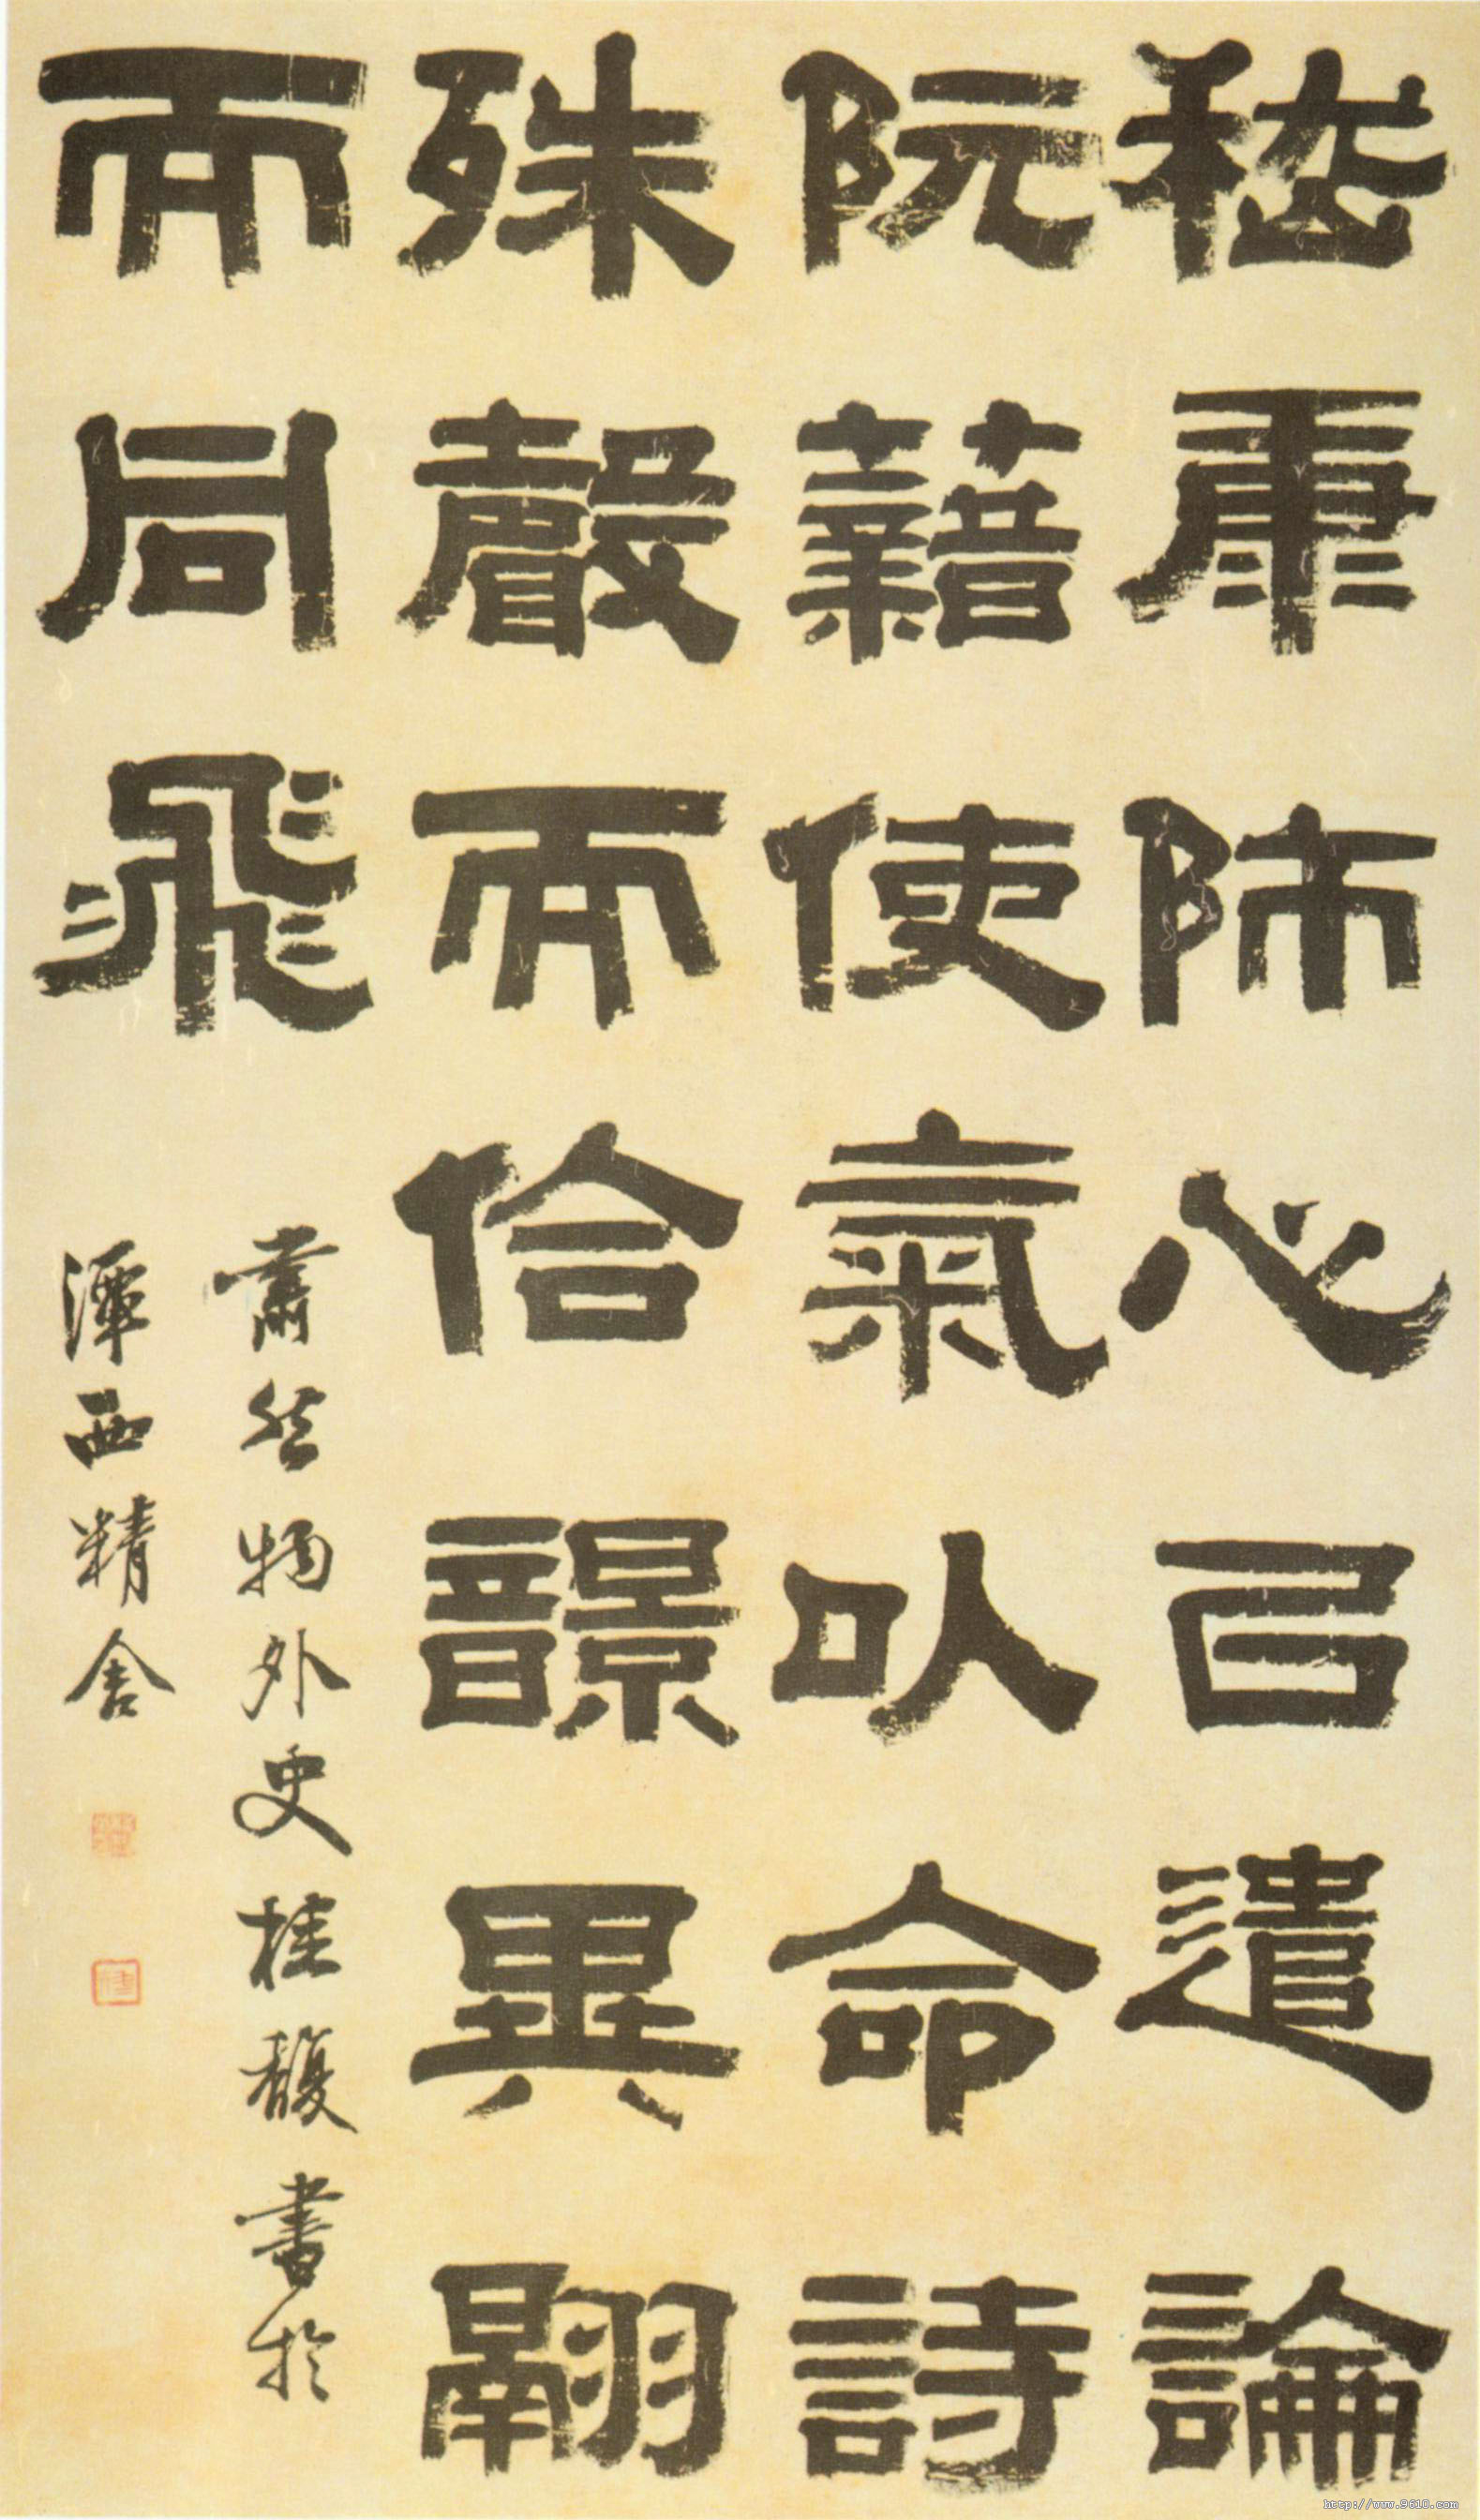 嵇康師心吕遣論
阮藉使氣㕥命詩
殊聲而佮響異翮
而同飛
肅然物外史桂馥書於
潭西精舍
http://www.9610.com